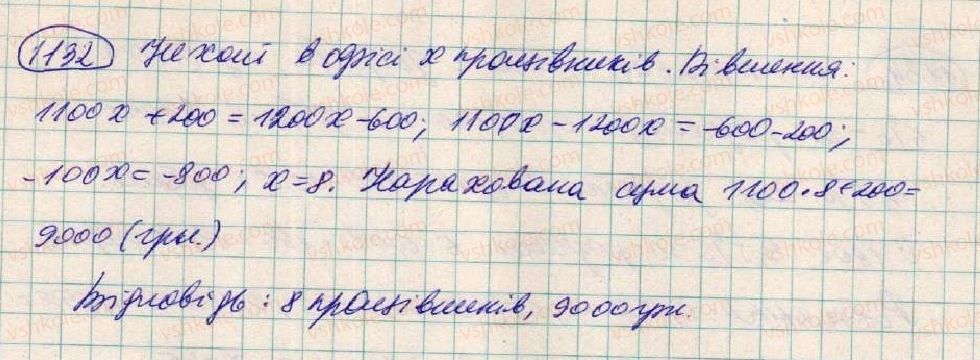 1132 Нехай в офісі х працівників. Рівняння:
1100х + 200 = 1200х - 600; 1100х - 1200х = -600 - 200;
-100х = -800; х = 8. Нарахована сума 1100 · 8 + 200 =
9000 (грн.)
Відповідь: 8 працівників, 9000 грн.